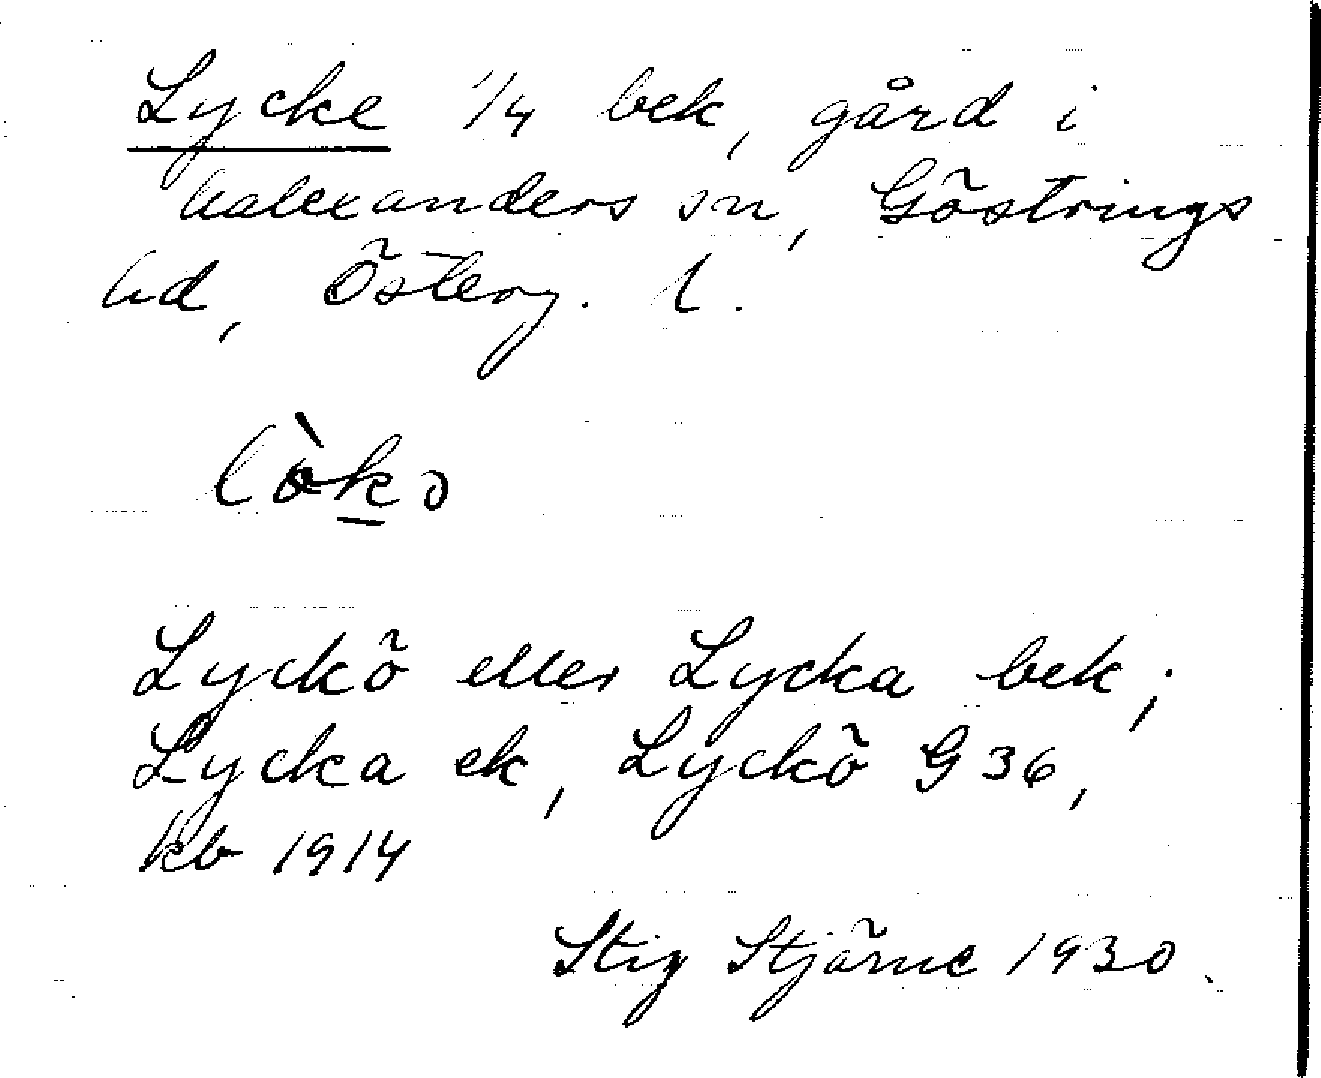 Lycke 1/4 bek, gård i
Walexanders sn, Göstrings
hd, Österg. l.
lò̀ko
Lyckö eller Lycka bek;
Lycka ek, Lyckö G 36,
kb 1914
Stig Stjärne 1930.